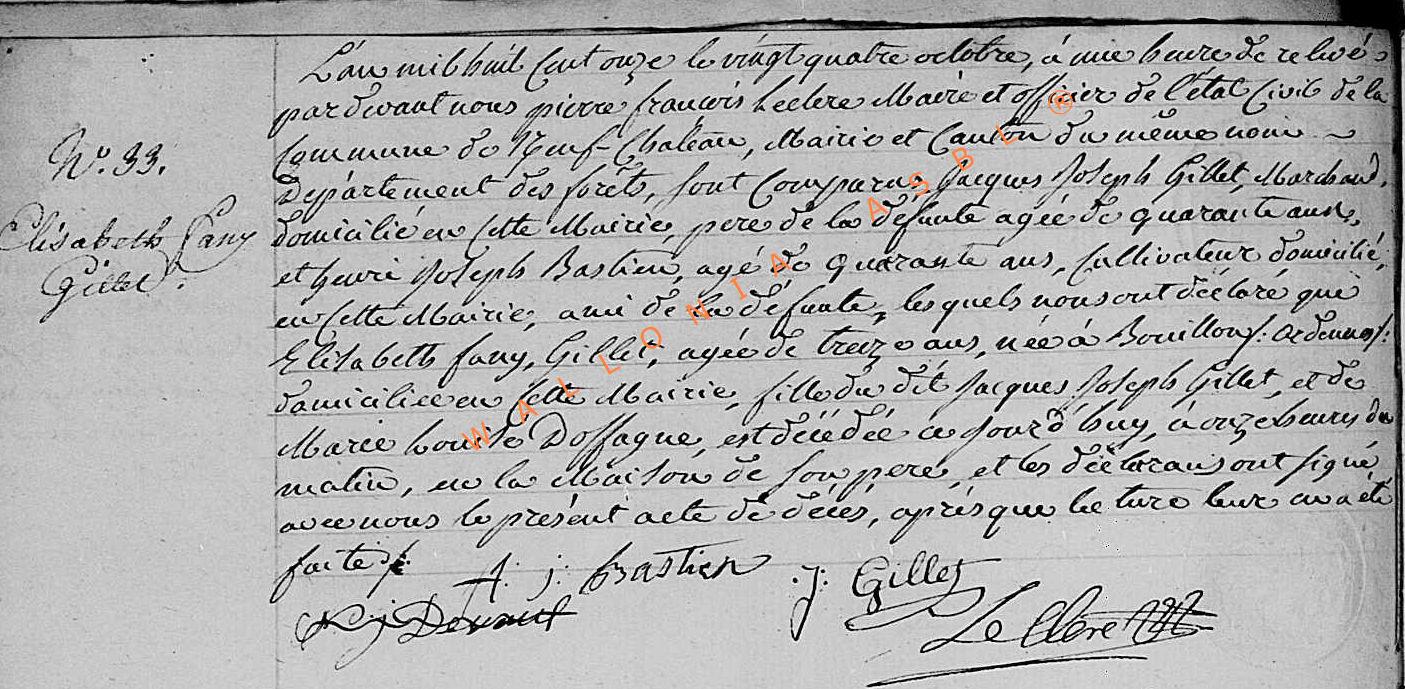 L'an mil huit cent onze le vingt quatre octobre, à une heure de relevé
par devant nous pierre françois Leclere Maire et officier de l'état Civil de la
Commune de Neuf-Chateau, Mairie et Canton du même nom
N.º 33.
Département des forêts, sont Comparu, Jacques Joseph Gillet, Marchand,
Elisabeth Fany
Gillet.
domicilié en Cette Mairie, pere de la défunte agée de quarante ans,
et henri Joseph Bastien, agé de quarante ans, Cultivateur domicilié,
en Cette Mairie, ami de la défunte, lesquels nous ont déclaré que
Elisabeth fany, Gillet, agée de treize ans, née à Bouillon /: Ardennes /:
domiciliée en Cette Mairie, fille du dit Jacques Joseph Gillet, et de
Marie Louise Doffagne, est décédée ce jourd'huy, à onze heures du
matin, en la Maison de son pere, et les déclarans ont signé
avec nous le présent acte de décés, après que lecture leur en a été
faite
h: j: Bastien
J: Gillet
Leclere
WALLONIA ASBL ®